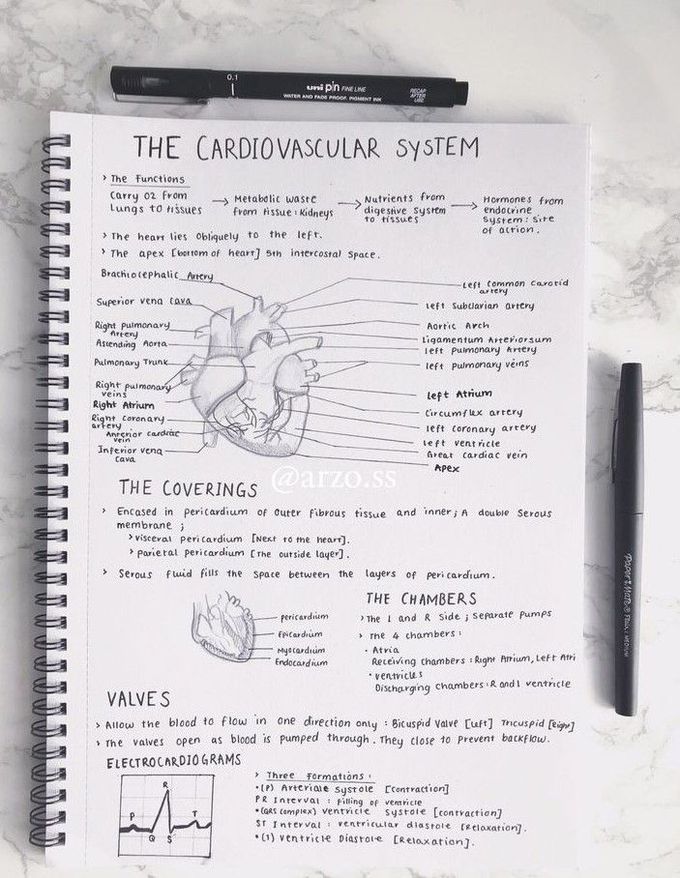 0.1 uni pin FINE LINE
WATER AND FADE PROOF, PIGMENT INK
RECAP
AFTER
USE
THE CARDIOVASCULAR SYSTEM
> The Functions
Carry O2 from
Lungs to tissues
→ Metabolic waste
from tissue : Kidneys
→ Nutrients from
digestive system
to tissues
→ Hormones from
endocrine
system : site
of action.
> The heart lies obliquely to the left.
> The apex [bottom of heart] 5th intercostal space.
Brachiocephalic Artery
Superior vena cava
Right pulmonary
Artery
Ascending Aorta
Pulmonary Trunk
Right pulmonary
veins
Right Atrium
Right coronary
artery
Anterior cardiac
vein
Inferior vena
cava
Left Common Carotid
artery
Left Subclavian artery
Aortic Arch
Ligamentum Arteriorsum
Left pulmonary Artery
Left pulmonary veins
Left Atrium
Circumflex artery
Left coronary artery
Left ventricle
Great cardiac vein
Apex
@arzo.ss
THE COVERINGS
> Encased in pericardium of outer fibrous tissue and inner; A double serous
membrane ;
> visceral pericardium [Next to the heart].
> parietal pericardium [The outside layer].
> Serous fluid fills the space between the layers of pericardium.
pericardium
Epicardium
Myocardium
Endocardium
THE CHAMBERS
> The L and R Side ; Separate pumps
> The 4 chambers :
• Atria
Receiving chambers : Right Atrium, Left Atri
• ventricles
Discharging chambers : R and L ventricle
VALVES
> Allow the blood to flow in one direction only : Bicuspid valve [Left] Tricuspid [Right]
> The valves open as blood is pumped through. They close to prevent backflow.
ELECTROCARDIOGRAMS
P
R
T
Q S
> Three formations :
• (P) Arteriale Systole [contraction]
PR Interval : filling of ventricle
• (QRS complex) Ventricle Systole [contraction]
ST Interval : ventricular diastole [Relaxation].
• (T) Ventricle Diastole [Relaxation].
Paper Mate